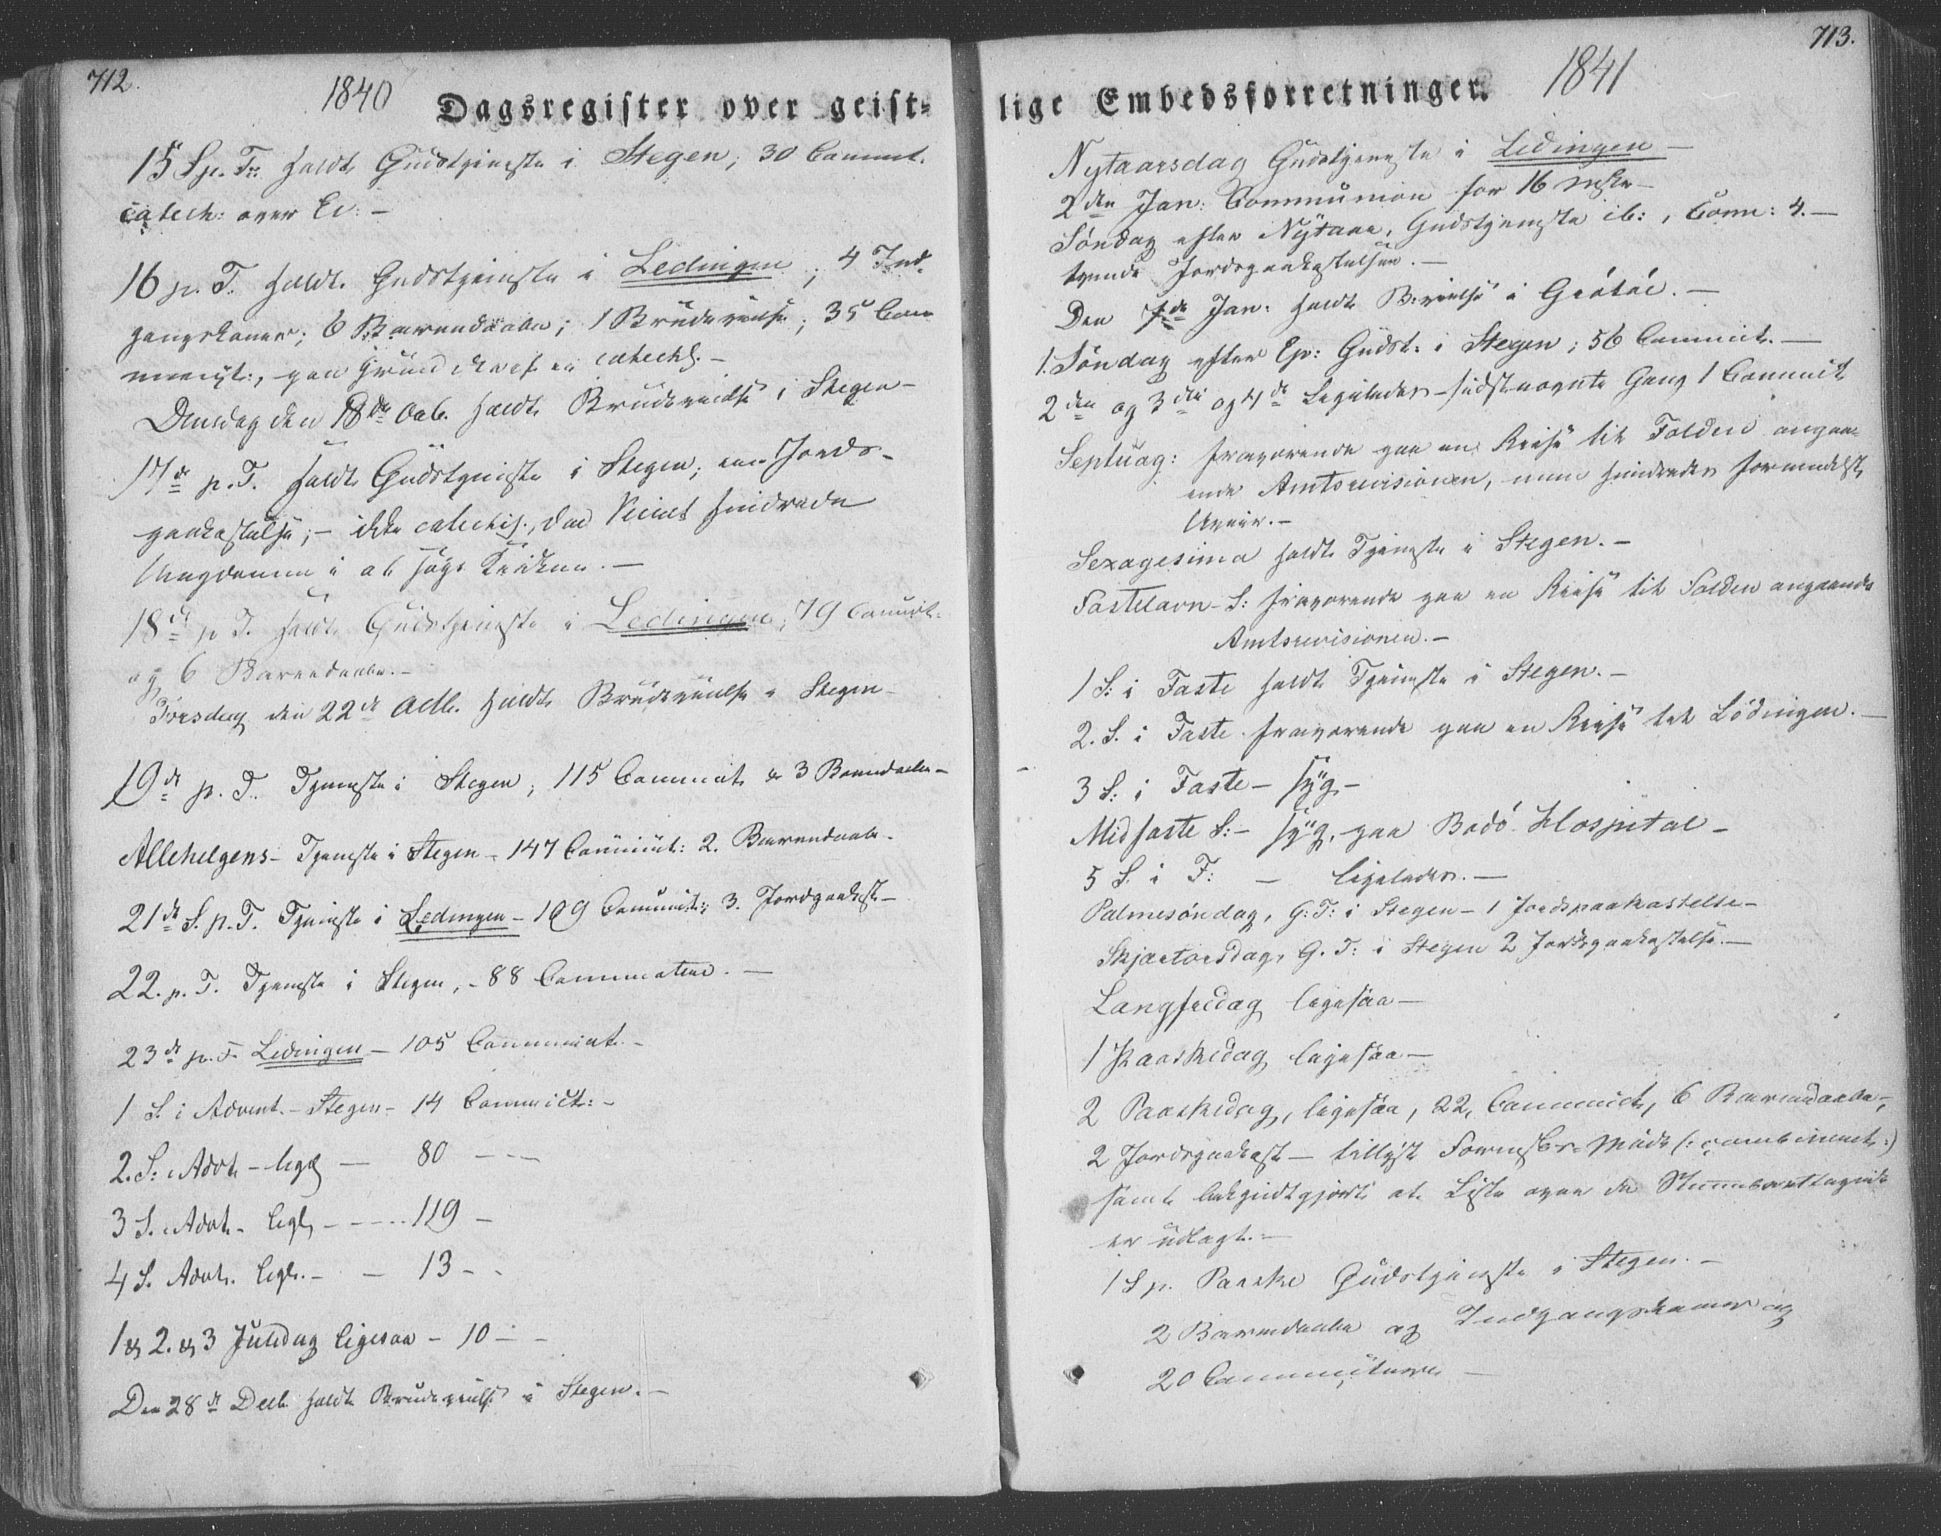 712.
1840
Dagsregister over geist-
15 S. p. Tr. holdt Gudstjeneste i Stegen; 30 Commt.
catech: over Ev: -
16 p. T. holdt Gudstjeneste i Ledingen; 4 Ind-
gangskoner; 6 Barnedaabe; 1 Brudevielse; 35 Com
munict:, paa Grund deraf ei catechs. -
Onsdag den 18de Octb. holdt Brudevielse i Stegen -
17de p. T. holdt Gudstjeneste i Stegen; een Jords-
paakastelse; - ikke catechis., da Veiret hindrede
Ungdommen i at søge Kirken. -
18de p T. holdt Gudstjeneste i Ledingen; 79 Commct.
og 6 Barnedaabe. -
Torsdag den 22de Octb. holdt Brudevielse i Stegen -
19de p. T. Tjeneste i Stegen; 115 Communict. & 3 Barnedaabe -
Allehelgens - Tjeneste i Stegen - 147 Communict: 2. Barnedaabe -
21de S. p. T. Tjeneste i Ledingen - 109 Communict; 3. Jordpaakast -
22. p. T. Tjeneste i Stegen, - 88 Communicatene. -
23de p. T. Ledingen - 105 Communict. -
1 S. i Advent. - Stegen - 14 Communict: -
2. S: i Advt - lige - 80 - - -
3 S. i Advt. - ligl. - - - - 119 -
4 S. Advt. ligl. - - 13 - -
1 & 2. & 3 Juledag ligesaa - 10 - -
Den 28de Decb holdt Brudevielse i Stegen. -
713.
1841
lige Embedsforretninger.
Nytaarsdag Gudstjeneste i Ledingen -
2den Jan: Communion for 16 Msker -
Søndag efter Nytaar, Gudstjeneste ib:, Comm: 4. -
trende Jordspaakastelser. -
Den 7de Jan: holdt Brvielse i Grøtøe. -
1. Søndag efter Ep: Gudst: i Stegen; 56 Communict. -
2den og 3die og 4de Ligeledes - sidstnævnte Gang 1 Communict
Septuag: fraværende paa en Reise til Folden angaa-
ende Amtsrevisionen, men hindredes formedelst
Uveir. -
Sexagesima holdt Tjeneste i Stegen. -
Fastelavn - S: fraværende paa en Reise til Folden angaaende
Amtsrevisionen. -
1 S: i Faste holdt Tjeneste i Stegen. -
2. S. i Faste fraværende paa en Reise til Lødingen. -
3 S: i Faste - syg -
Midfaste S: - syg, paa Bodø Hospital -
5 S. i F: - ligeledes. -
Palmesøndag, G: T: i Stegen - 1 Jordspaakastelse -
Skjærtorsdag, G. T: i Stegen 2 Jordspaakastelse. -
Langfredag ligesaa -
1 Paaskedag ligesaa -
2 Paaskedag, ligesaa, 22, Communict, 6 Barnedaabe -,
2 Jordspaakast - tillyst Formskbs-Møde (: combineret :)
samt bekjendtgjort at Liste over de Stemmeberettigede
er udlagt. -
1 S p. Paaske Gudstjeneste i Stegen. -
2 Barnedaabe og Indgangskoner og
20 Communicantere -